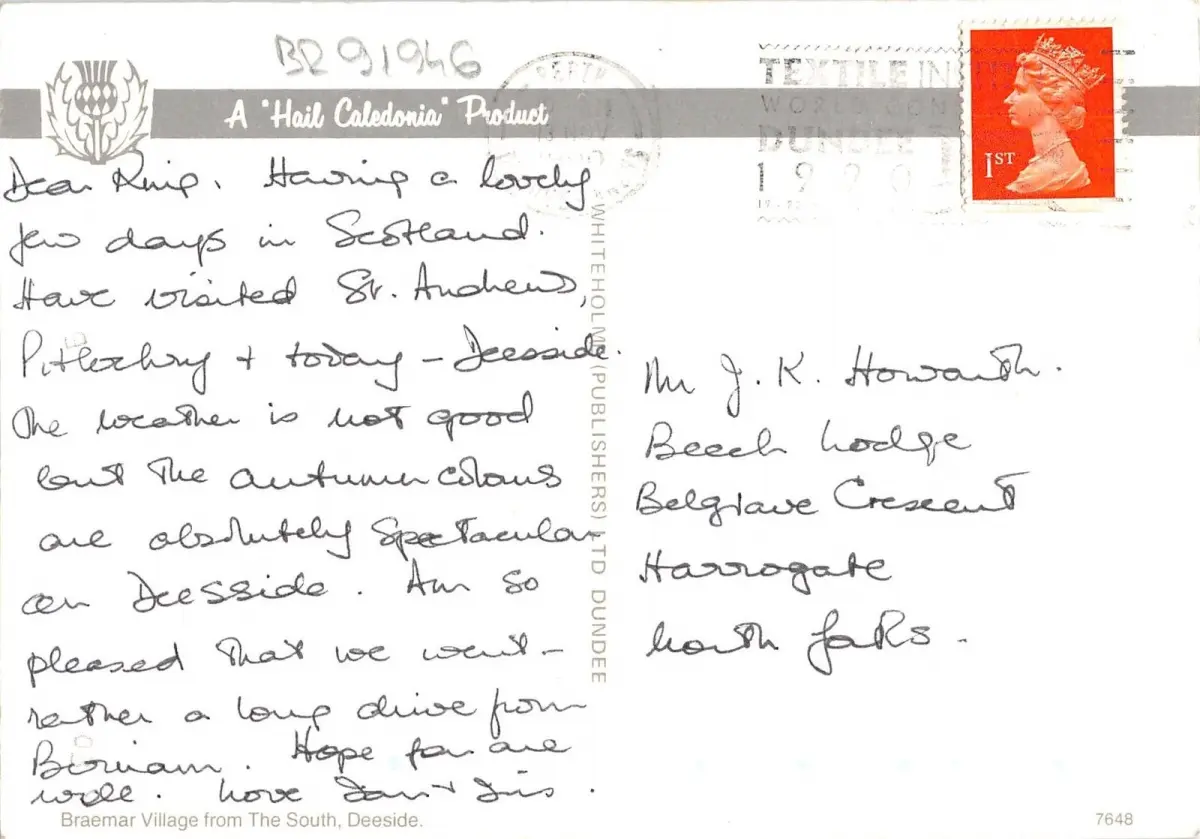 BR91946
A "Hail Caledonia" Product
PERTH
TEXTILE IN
WORLD CON
DUNDEE
1990
1ST
Dear King. Having a lovely
few days in Scotland.
Have visited St. Andrews,
Pitlochry + today – Deeside.
The weather is not good
but the autumn colours
are absolutely spectacular
on Deesside. Am so
pleased that we went –
rather a long drive from
Birnam. Hope you are
well. Love Ian + Iris.
WHITEHOLME (PUBLISHERS) LTD DUNDEE
Mr J. K. Howarth.
Beech Lodge
Belgrave Crescent
Harrogate
North Yorks.
Braemar Village from The South, Deeside.
7648